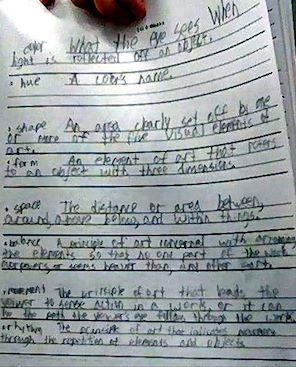 • color What the eye sees when
light is reflected off an object.
• hue A color's name.
• shape An area clearly set off by one
or more of the five visual elements of
art.
• form An element of art that refers
to an object with three dimensions.
• space The distance or area between,
around, above below, and within things.
• balance A principle of art concerned with arranging
the elements so that no one part of the work
or seems heavier than, any other part.
• movement The principle of art that leads the
viewer to sense action in a work, or it can
be the path the viewer's eye follows through the work.
• rhythm The principle of art that indicates movement
through the repetition of elements and objects